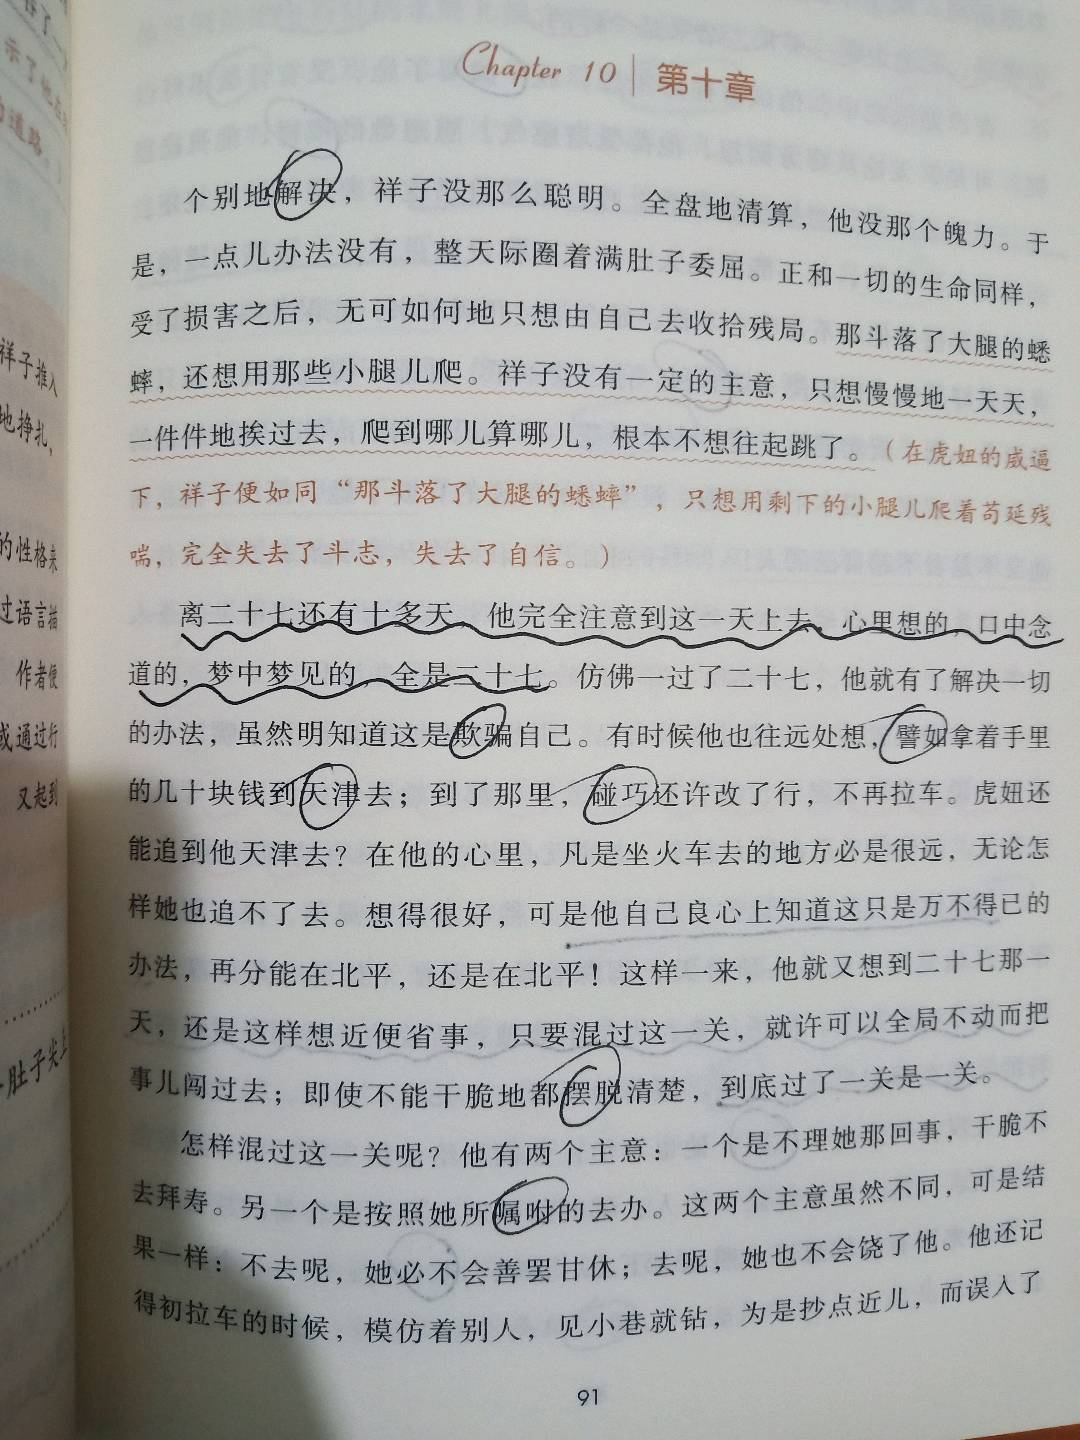 示了他
的道路。]
祥子推入
地挣扎，
的性格来
过语言描
作者便
或通过行
又起到
肚子尖
Chapter 10 | 第十章
个别地解决，祥子没那么聪明。全盘地清算，他没那个魄力。于
是，一点儿办法没有，整天际圈着满肚子委屈。正和一切的生命同样，
受了损害之后，无可如何地只想由自己去收拾残局。那斗落了大腿的蟋
蟀，还想用那些小腿儿爬。祥子没有一定的主意，只想慢慢地一天天，
一件件地挨过去，爬到哪儿算哪儿，根本不想往起跳了。（在虎妞的威逼
下，祥子便如同“那斗落了大腿的蟋蟀”，只想用剩下的小腿儿爬着苟延残
喘，完全失去了斗志，失去了自信。）
离二十七还有十多天，他完全注意到这一天上去，心里想的，口中念
道的，梦中梦见的，全是二十七。仿佛一过了二十七，他就有了解决一切
的办法，虽然明知道这是欺骗自己。有时候他也往远处想，譬如拿着手里
的几十块钱到天津去；到了那里，碰巧还许改了行，不再拉车。虎妞还
能追到他天津去？在他的心里，凡是坐火车去的地方必是很远，无论怎
样她也追不了去。想得很好，可是他自己良心上知道这只是万不得已的
办法，再分能在北平，还是在北平！这样一来，他就又想到二十七那一
天，还是这样想近便省事，只要混过这一关，就许可以全局不动而把
事儿闯过去；即使不能干脆地都摆脱清楚，到底过了一关是一关。
怎样混过这一关呢？他有两个主意：一个是不理她那回事，干脆不
去拜寿。另一个是按照她所嘱咐的去办。这两个主意虽然不同，可是结
果一样：不去呢，她必不会善罢甘休；去呢，她也不会饶了他。他还记
得初拉车的时候，模仿着别人，见小巷就钻，为是抄点近儿，而误入了
91